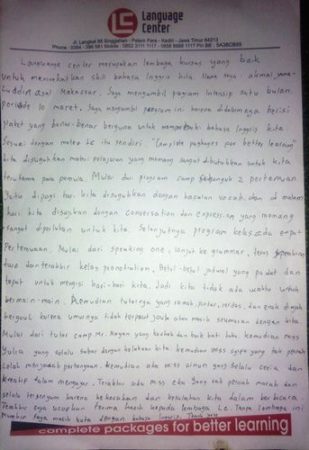 Language
Center
Jl. Langkat 88 Singgahan - Pelem Pare - Kediri - Jawa Timur 64213
Language center merupakan lembaga kursus yang baik
untuk meningkatkan skill bahasa Inggris kita. Nama saya akmal jama-
luddin asal Makassar. Saya mengambil program intensip satu bulan
periode 10 maret. Saya mengambil program ini karena didalamnya berisi
paket yang benar-benar berguna untuk bahasa Inggris kita
Sesuai dengan moto LC itu sendiri "Complete packages for better learning"
kita disuguhkan materi pelajaran yang memang sangat dibutuhkan untuk kita
terutama para pemula. Mulai dari program camp sebanyak 2 pertemuan
yaitu dipagi hari kita disuguhkan dengan hapalan vocab. dan di malam
hari kita disajikan dengan conversation dan expression yang memang
sangat diperlukan untuk kita. Selanjutnya program kelas ada empat
Pertemuan. Mulai dari speaking one, lanjut ke grammar, terus speaking
two dan terakhir kelas pronunciation. Betul-betul jadwal yang padat dan
tepat untuk mengisi hari-hari kita. Jadi kita tidak ada waktu untuk
bermain-main. Kemudian tutornya yang ramah, pintar, cerdas, dan enak diajak
bergaul karena umurnya tidak terpaut jauh atau masih seumuran dengan kita.
Mulai dari tutor camp Mr. yang kocak dan baik hati. kemudian miss
Yulisa yang selalu sabar dengan kita. kemudian miss yang tak pernah
Lelah menjawab pertanyaan. kemudian ada miss ainun yang selalu ceria dan
kreatip dalam mengajar. Terakhir ada miss eda yang tak pernah marah dan
selalu tersenyum karena kekocakan dan kesalahan kita dalam berbicara.
Terakhir saya ucapkan terima kasih kepada lembaga LC. Tanpa lembaga ini
Mungkin saya masih buta dengan bahasa Inggris. Thank you
complete packages for better learning